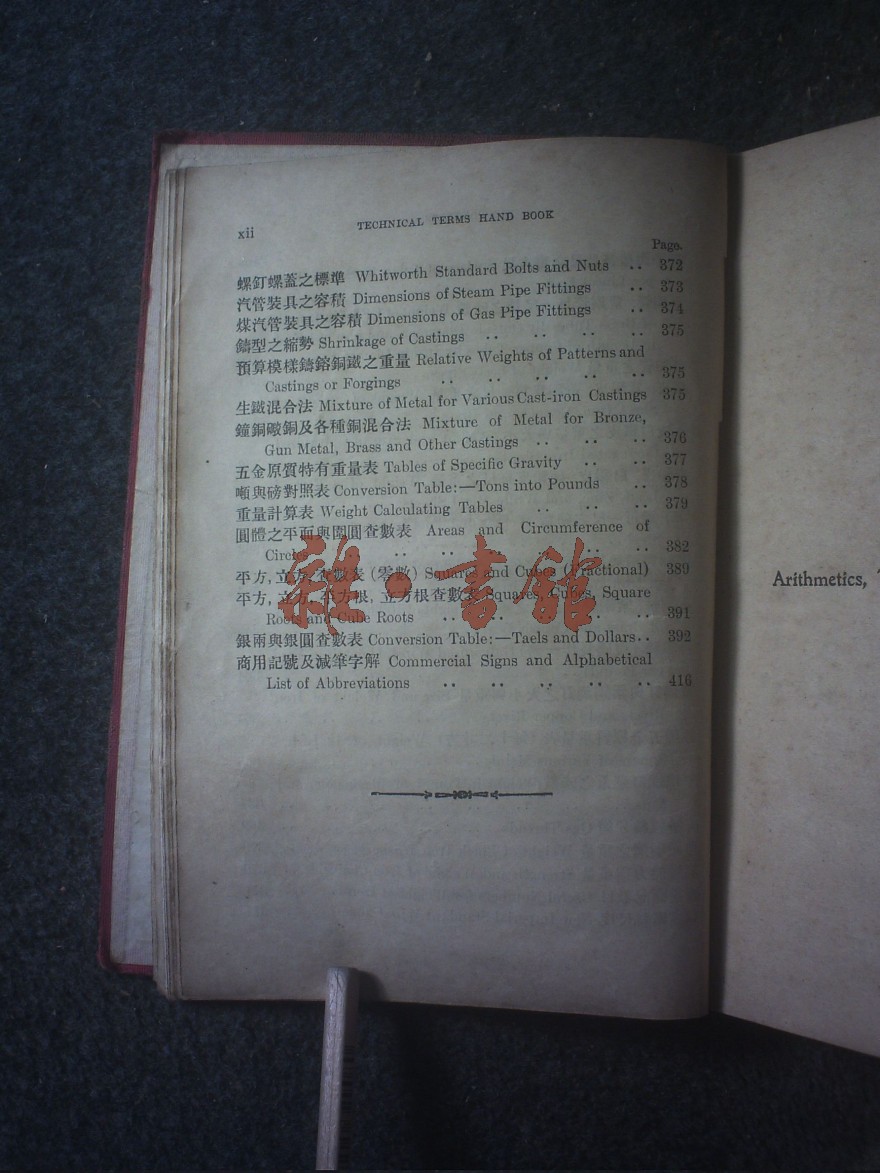 xii
TECHNICAL TERMS HAND BOOK
Page.
螺釘螺蓋之標準 Whitworth Standard Bolts and Nuts .. 372
汽管裝具之容積 Dimensions of Steam Pipe Fittings .. 373
煤汽管裝具之容積 Dimensions of Gas Pipe Fittings .. 374
鑄型之縮勢 Shrinkage of Castings .. .. .. .. 375
預算模樣鑄鎔銅鐵之重量 Relative Weights of Patterns and
Castings or Forgings .. .. .. .. .. 375
生鐵混合法 Mixture of Metal for Various Cast-iron Castings 375
鐘銅礮銅及各種銅混合法 Mixture of Metal for Bronze,
Gun Metal, Brass and Other Castings .. .. .. 376
五金原質特有重量表 Tables of Specific Gravity .. .. 377
噸與磅對照表 Conversion Table:—Tons into Pounds .. 378
重量計算表 Weight Calculating Tables .. .. .. 379
圓體之平面與圍圓查數表 Areas and Circumference of
Circles .. .. .. .. .. .. 382
平方, 立方, 查數表 (零數) Squares and Cubes (Fractional) 389
平方, 立方, 平方根, 立方根查數表 Squares, Cubes, Square
Roots and Cube Roots .. .. .. .. .. 391
銀兩與銀圓查數表 Conversion Table:—Taels and Dollars.. 392
商用記號及減筆字解 Commercial Signs and Alphabetical
List of Abbreviations .. .. .. .. .. 416
雜·書館
Arithmetics,